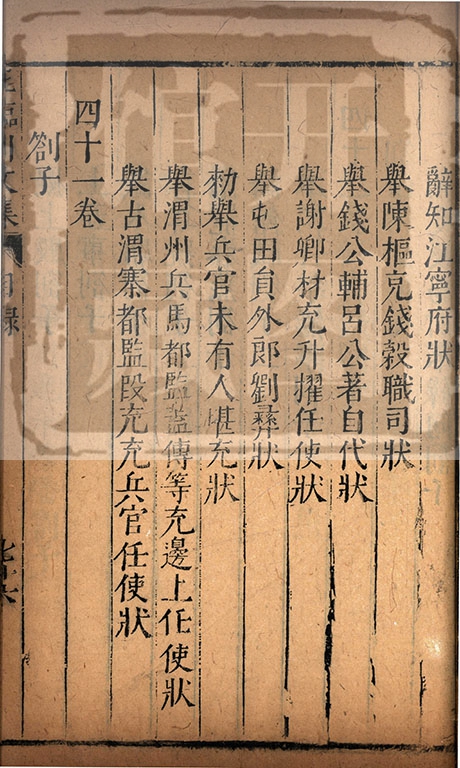 辭知江寧府狀
舉陳樞充錢穀職司狀
舉錢公輔呂公著自代狀
舉謝卿材充升擢任使狀
舉屯田員外郎劉彞狀
勑舉兵官未有人堪充狀
舉渭州兵馬都監蓋傳等充邊上任使狀
舉古渭寨都監段充充兵官任使狀
四十一卷
劄子
臨川文集 目錄